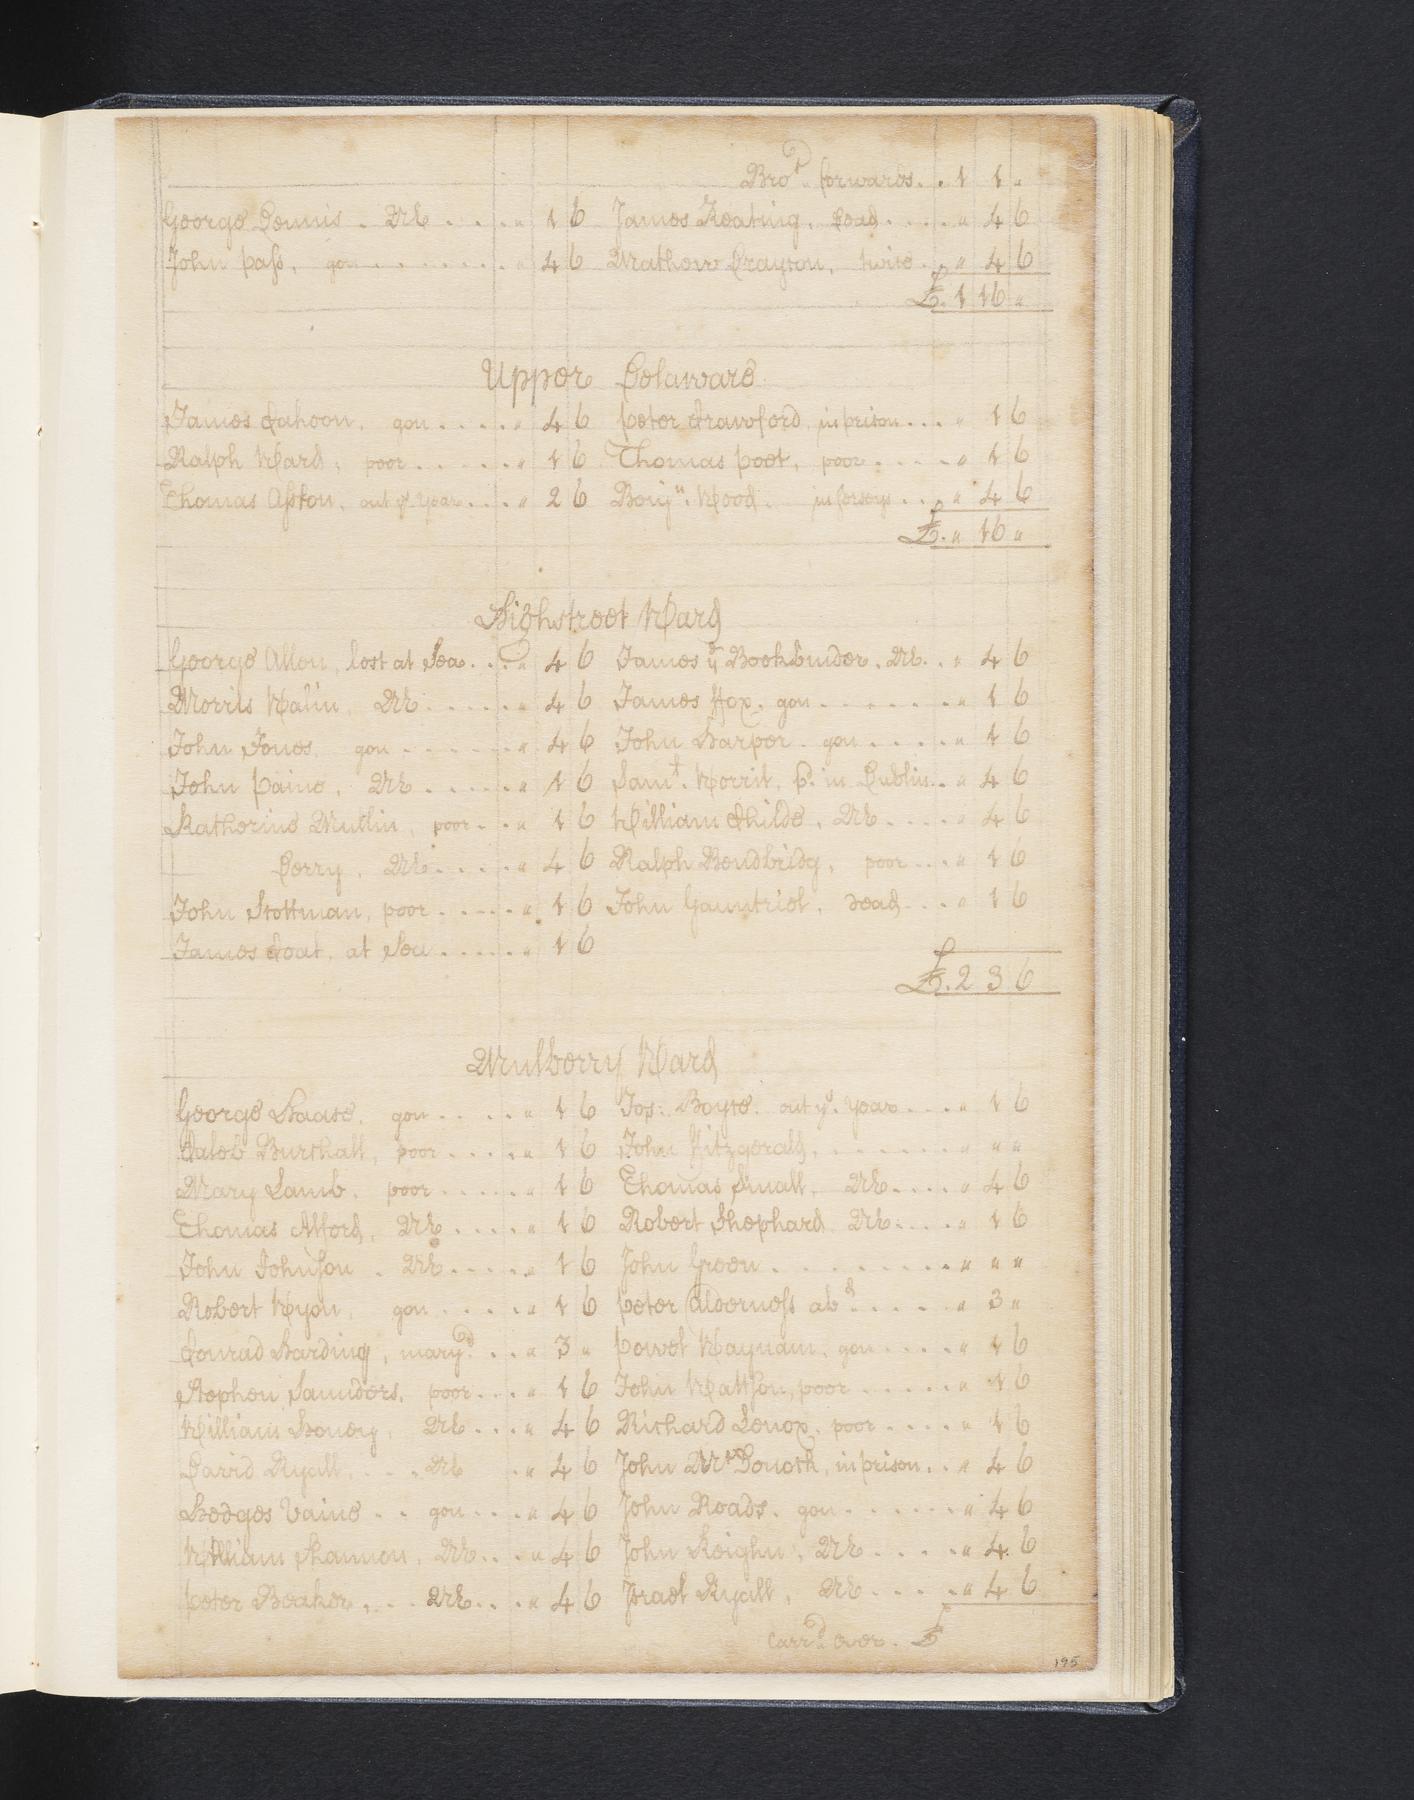 Bro.d forwards . . 1 1 "
George Dennis . ME . . . . " 1 6 James Keating, dead . . . . " 4 6
John Pass, gon . . . . . . . " 4 6 Mathew Drayton, twice . . " 4 6
£. 1 16 "
Upper Delaware
James Cahoon, gon . . . . " 4 6 Peter Crawford, in prison . . . " 1 6
Ralph Ward, poor . . . . . " 1 6 Thomas Poet, poor . . . . " 1 6
Thomas Asston, out ye year . . . " 2 6 Benjn. Wood. in Jerseys . . . " 4 6
£. " 16 "
Highstreet Ward
George Allen, lost at Sea . . . " 4 6 James ye Bookbinder, ME . . " 4 6
Morris Nalin, ME . . . . . " 4 6 James Fox. gon . . . . . . . " 1 6
John Jones, gon . . . . . . " 4 6 John Harper . gon . . . . . " 1 6
John Paine, ME . . . . . " 1 6 Saml. Norrit, P. in Dublin . . " 4 6
Katherine Mullin, poor . . . " 1 6 William Childe, ME . . . . " 4 6
Derry, ME . . . . " 4 6 Ralph Bendbridg, poor . . . " 1 6
John Stottman, poor . . . . . " 1 6 John Gauntriet, dead . . . " 1 6
James Coat, at Sea . . . . . " 1 6
£. 2 3 6
Mulberry Ward
George Haase, gon . . . . . " 1 6 Jos: Boyte. out ye. year . . . . " 1 6
Caleb Burchall, poor . . . . " 1 6 John Fitzgerald, . . . . . . . " " "
Mary Lamb. poor . . . . . " 1 6 Thomas Small, ME . . . . " 4 6
Thomas Alford, ME . . . . " 1 6 Robert Shephard ME . . . . " 1 6
John Johnson . ME . . . . . " 1 6 John Green . . . . . . . . . " " "
Robert Wyon, gon . . . . . " 1 6 Peter Alderness abd . . . . . " 3 "
Conrad Harding, maryd. . . " 3 " Powel Maynam, gon . . . . " 1 6
Stephen Saunders, poor . . . " 1 6 John Wattson, poor . . . . . " 1 6
William Honery, ME . . . " 4 6 Richard Lenox, poor . . . . " 1 6
David Ryall, . . . ME . " 4 6 John McDonock, in prison . . " 4 6
Hedges Vaine . . gon . . . " 4 6 John Roads, gon . . . . . . " 4 6
William Shannon, ME . . . " 4 6 John Keighn, ME . . . . . " 4 6
Peter Beaker, . . . ME . . . " 4 6 Israel Ryall, ME . . . . . " 4 6
Carrd. over . £
195